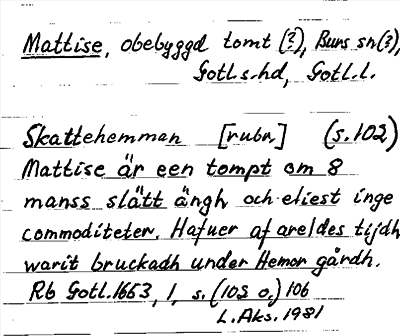 Mattise, obebyggd tomt (?), Burs sn(?),
Gotl.s.hd, Gotl.l.
Skattehemman [rubr.] (s.102)
Mattise är een tompt om 8
manss slått ängh och eliest inge
commoditeter. Hafuer af areldes tijdh
warit bruckadh under Hemor gårdh.
Rb Gotl.1653, 1, s. (103 o.) 106
L.Aks. 1981